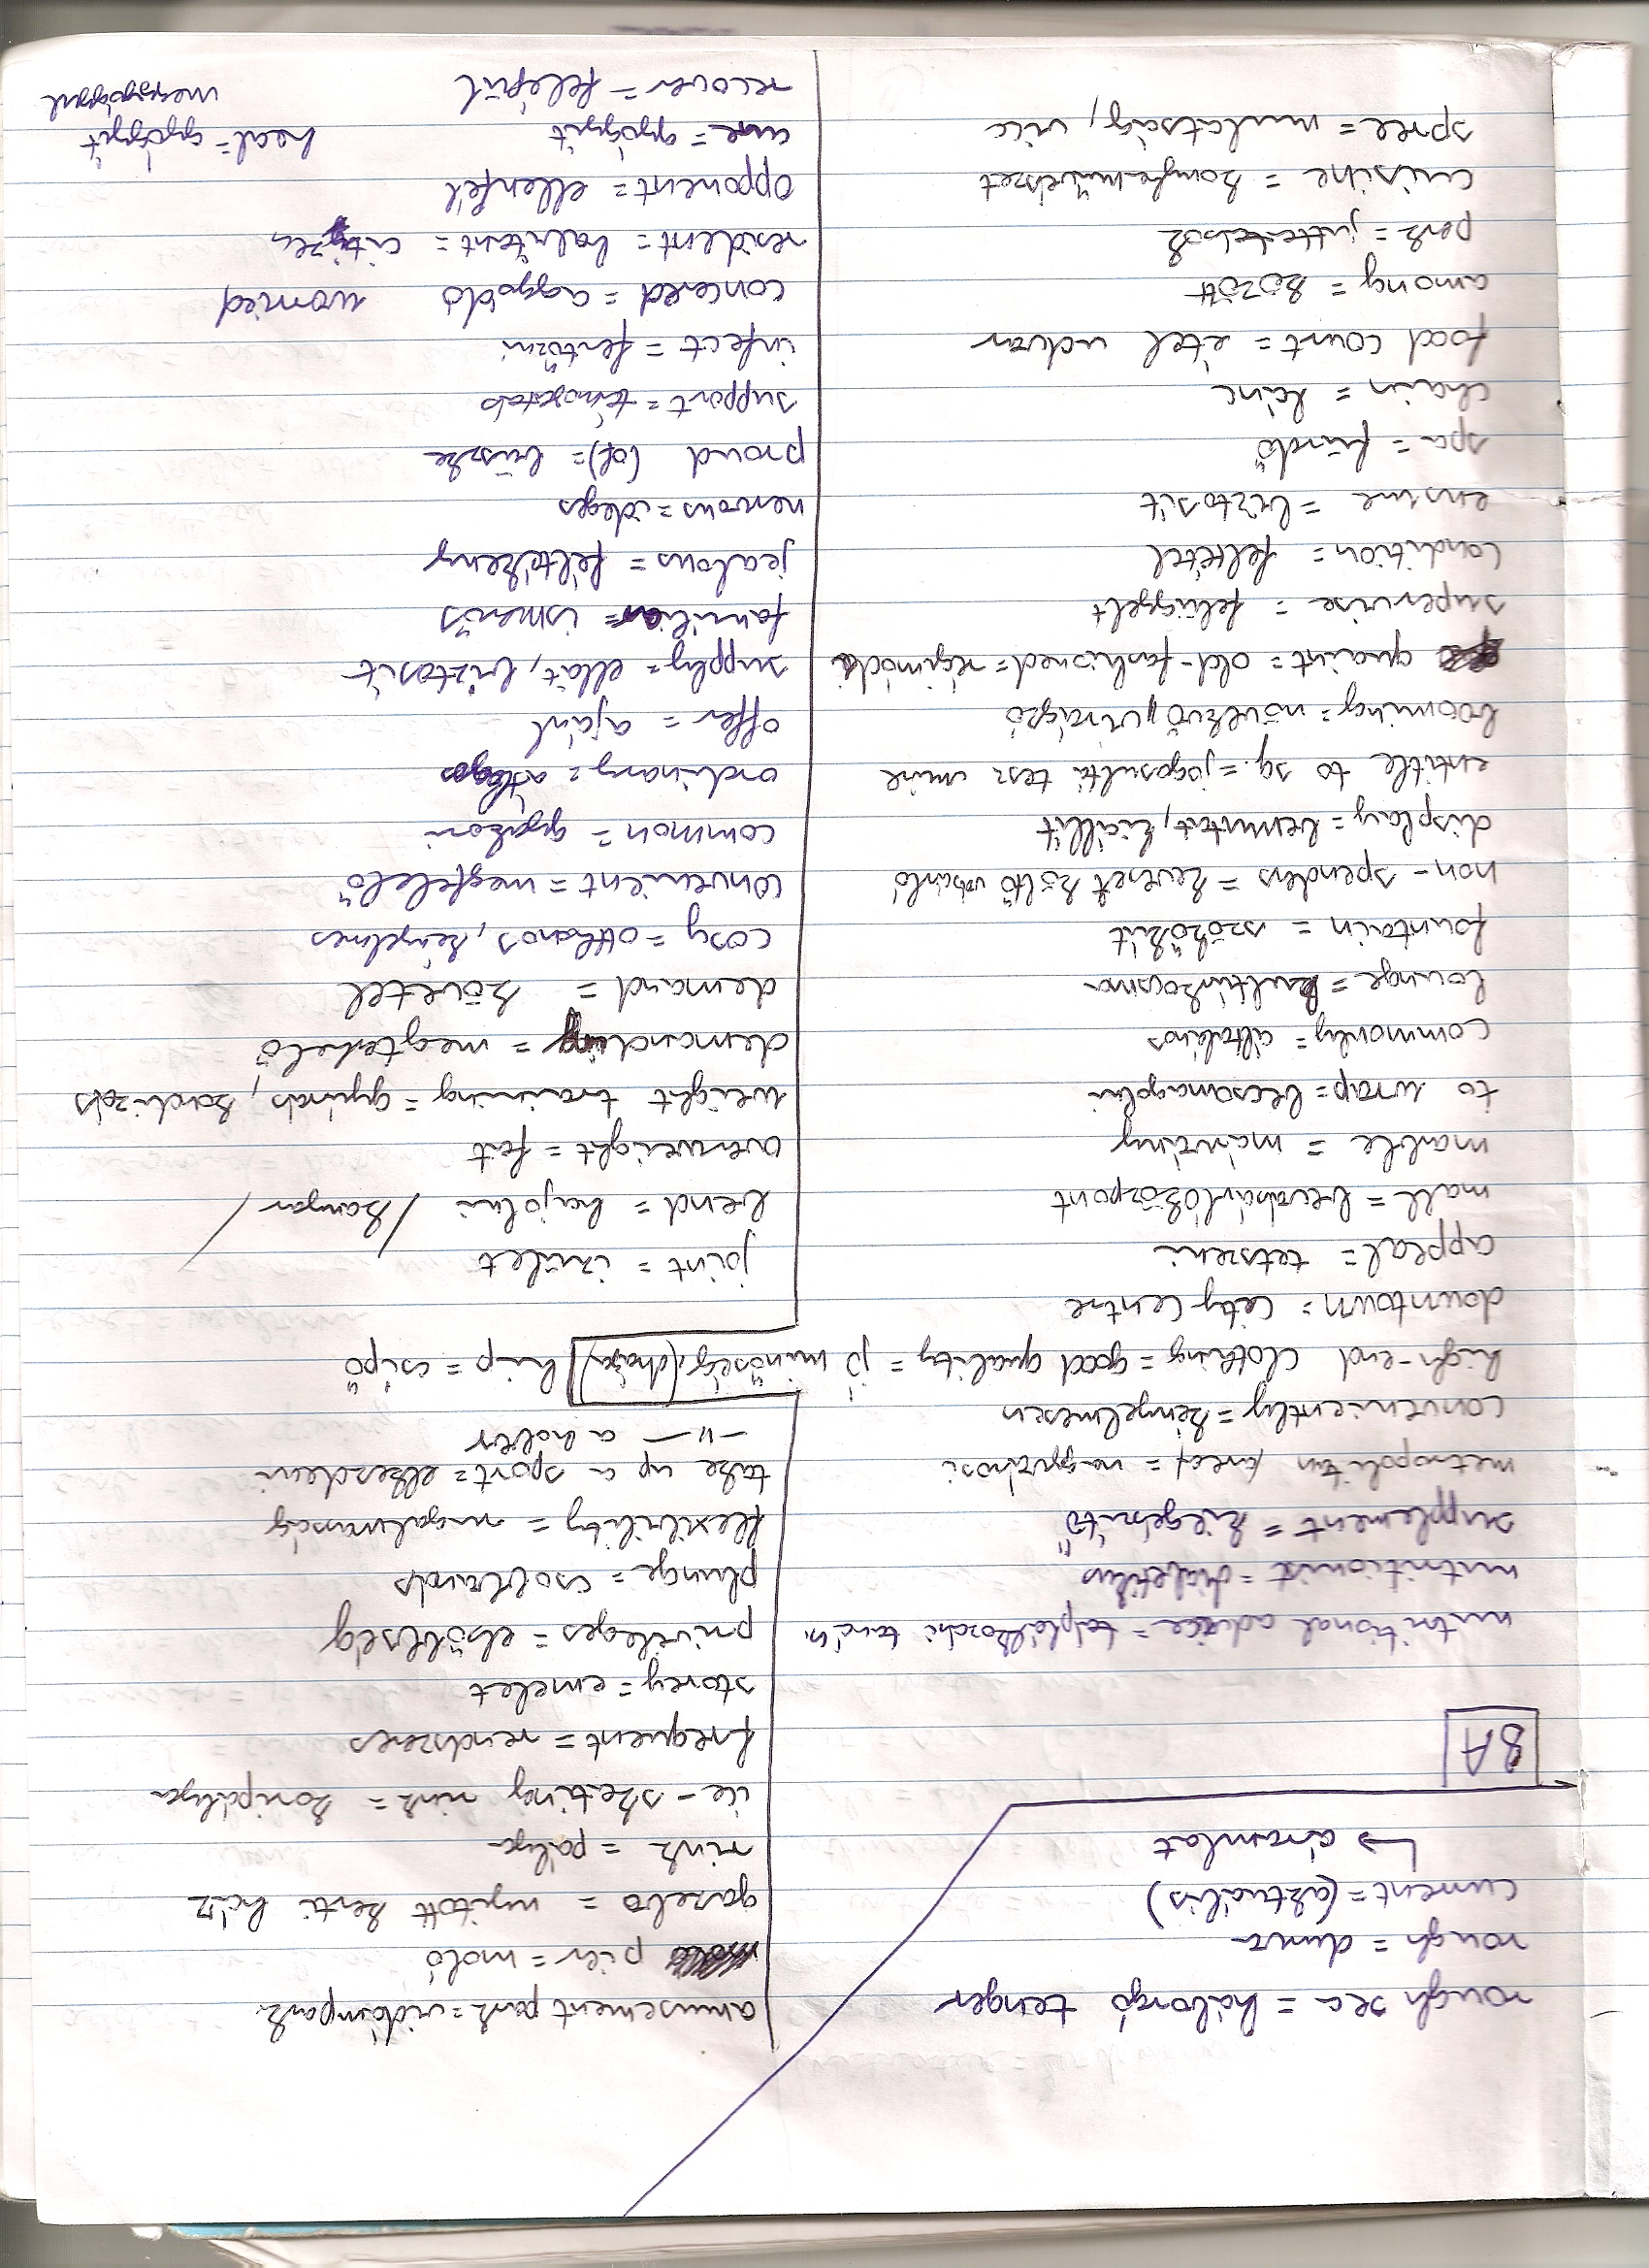 rough sea = háborgó tenger
rough = durva
current = (aktuális)
↳ áramlat
8A
nutritional advice = táplálkozási tanács
nutritionist = dietetikus
supplement = kiegészítő
metropolitan area = nagyvárosi
conveniently = kényelmesen
high-end clothing = good quality = jó minőség (drága)
downtown = city centre
appeal = tetszeni
mall = bevásárlóközpont
marble = márvány
to wrap = becsomagolni
commonly = általános
lounge =
fountain = szökőkút
non-spenders = keveset költő vásárló
display = bemutat, kiállít
entitle to sg. = jogosulttá tesz vmire
booming = növekvő, virágzó
quaint = old-fashioned = régimódi
supervise = felügyelt
condition = feltétel
ensure = biztosít
spa = fürdő
chain = lánc
food court = étel udvar
among = között
perk = juttatások
cuisine = konyhaművészet
spree = mulatság, vicc
amusement park = vidámpark
pier = móló
gazebo = nyitott kerti ház
rink = pálya
ice-skating rink = koripálya
frequent = rendszeres
storey = emelet
privileges = elsőbbség
plunge = csobbanás
flexibility = rugalmasság
take up a sport = elkezdeni
-"- a hobby
hip = csípő
joint = izület
bend = hajolni /kanyar/
overweight = fat
weight training = gyúrás, kardizás
demanding = megterhelő
demand = követel
cosy = otthonos, kényelmes
convenient = megfelelő
common = gyakori
ordinary = átlagos
offer = ajánl
supply = ellát, biztosít
familiar = ismerős
jealous = féltékeny
nervous = ideges
proud (of) = büszke
support = támogatás
infect = fertőzni
concered = aggódó worried
resident = habitant = citizen
opponent = ellenfél
cure = gyógyít heal = gyógyít
recover = felépül meggyógyul